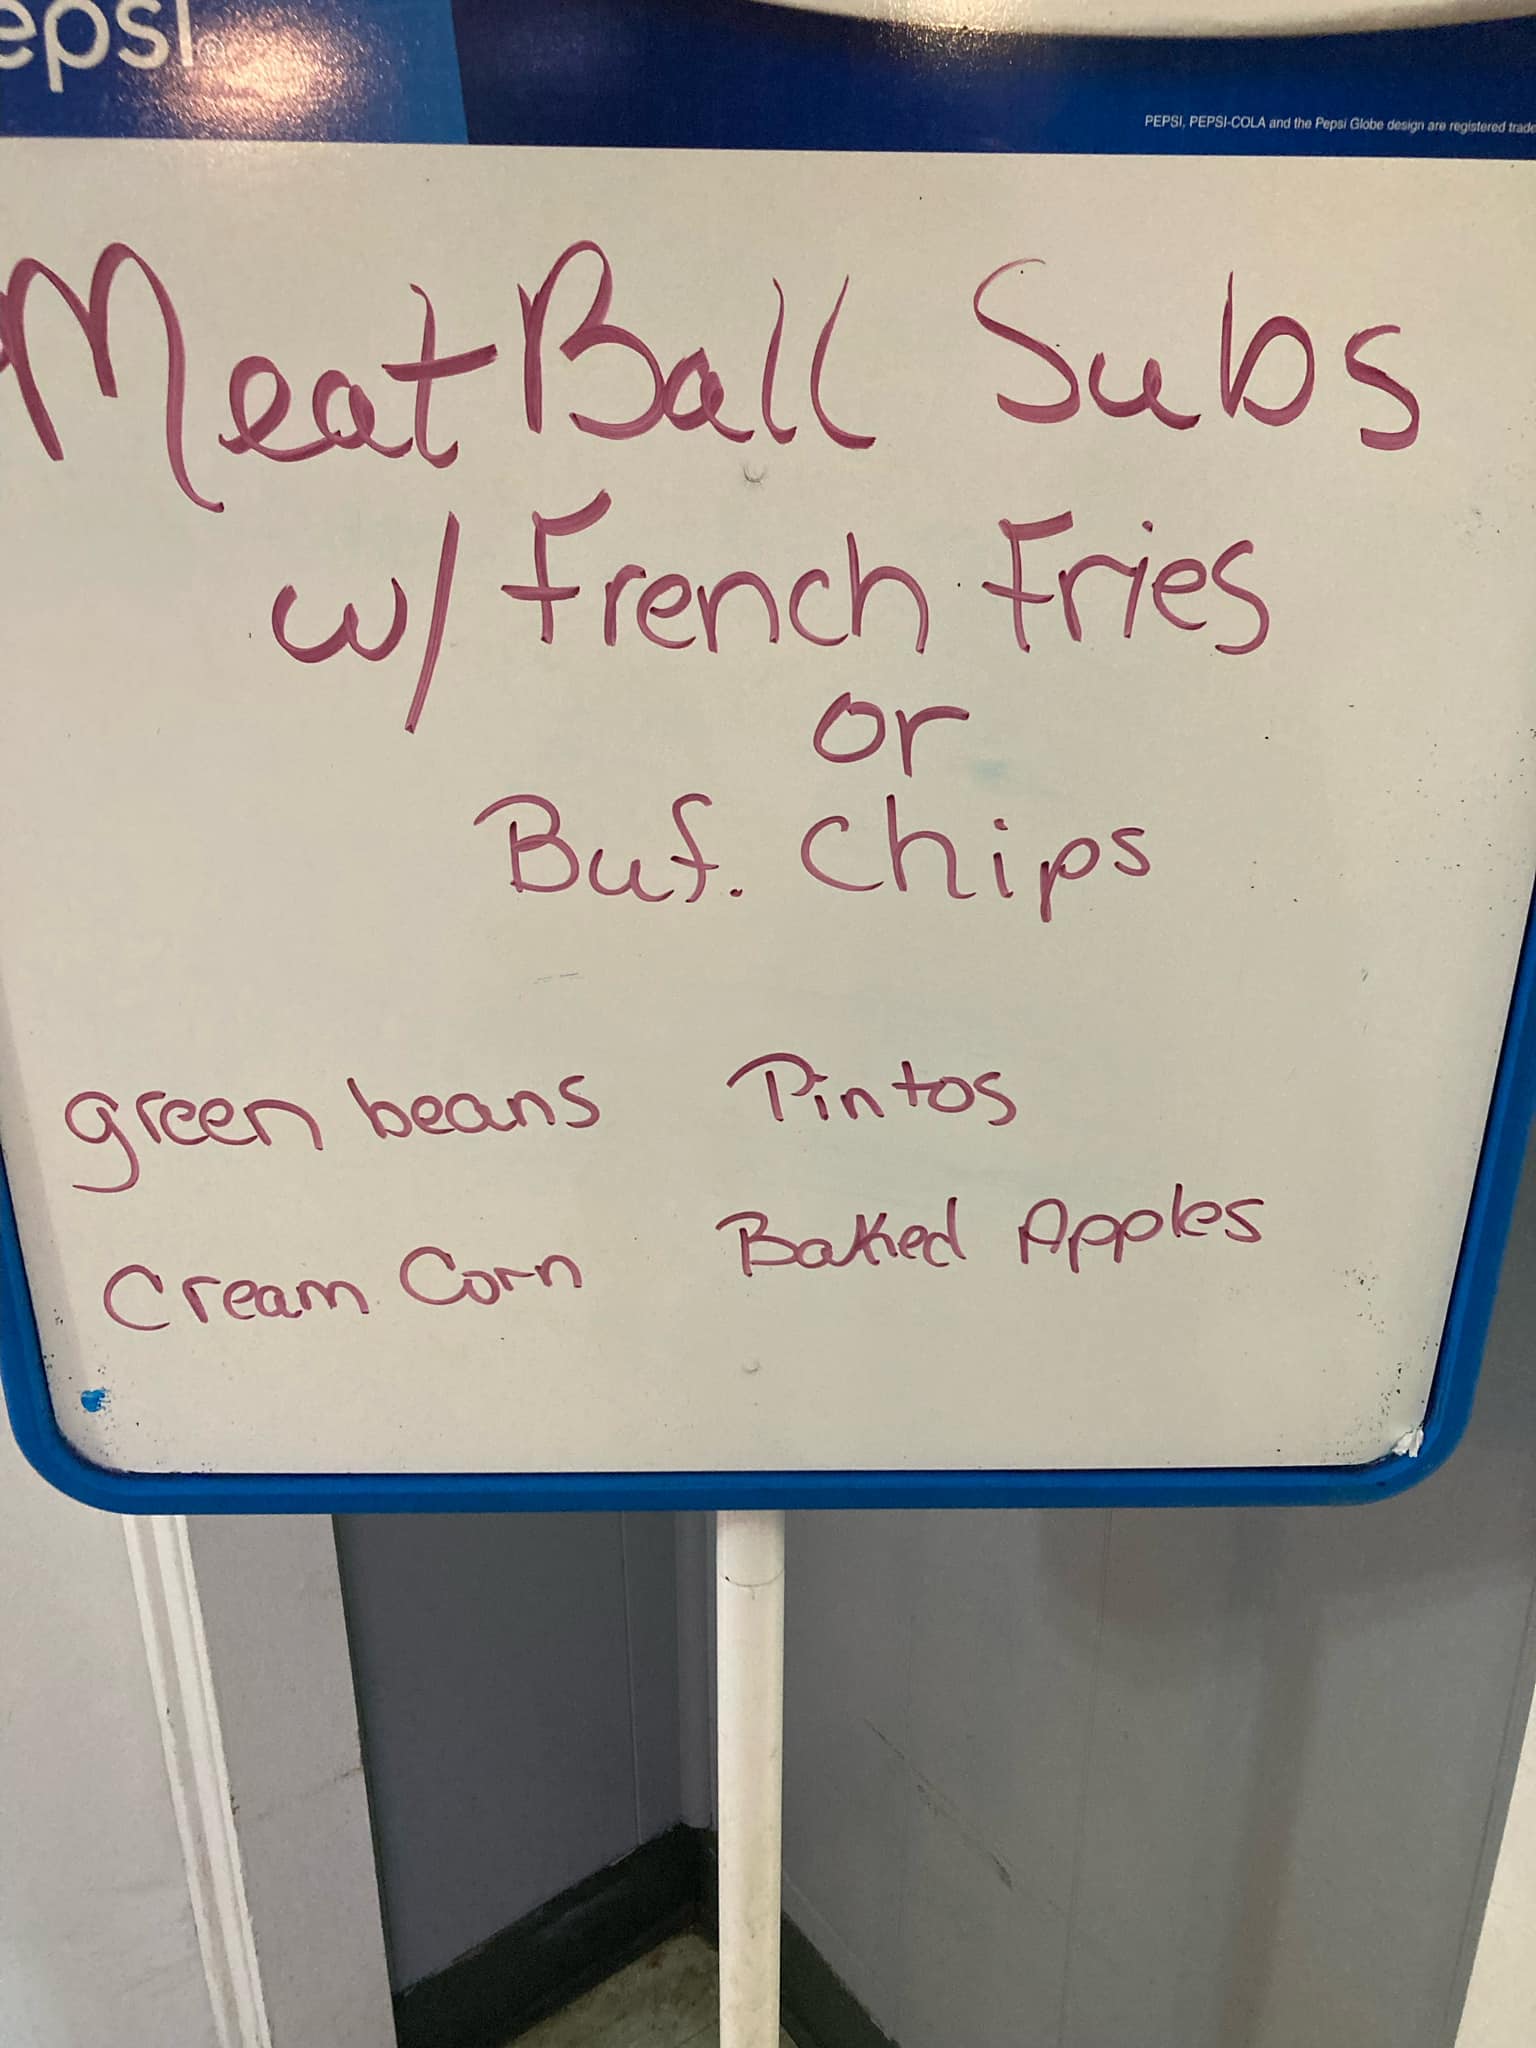 epsi
PEPSI, PEPSI-COLA and the Pepsi Globe design are registered trade
MeatBall Subs
w/ French Fries
or
Buf. Chips
green beans Pintos
Cream Corn Baked Apples